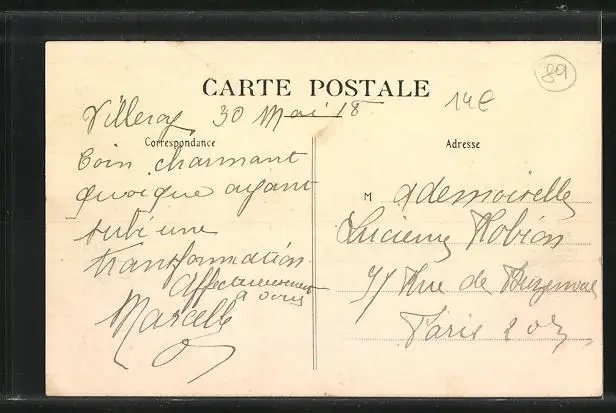 CARTE POSTALE
89
14€
Villeroy 30 Mai 18
Correspondance
Coin charmant
quoique ayant
subi une
transformation
Affectueusement
à vous
Marcelle
Adresse
M ademoiselle
Lucienne Robion
Rue de Buzenval
Paris 20e